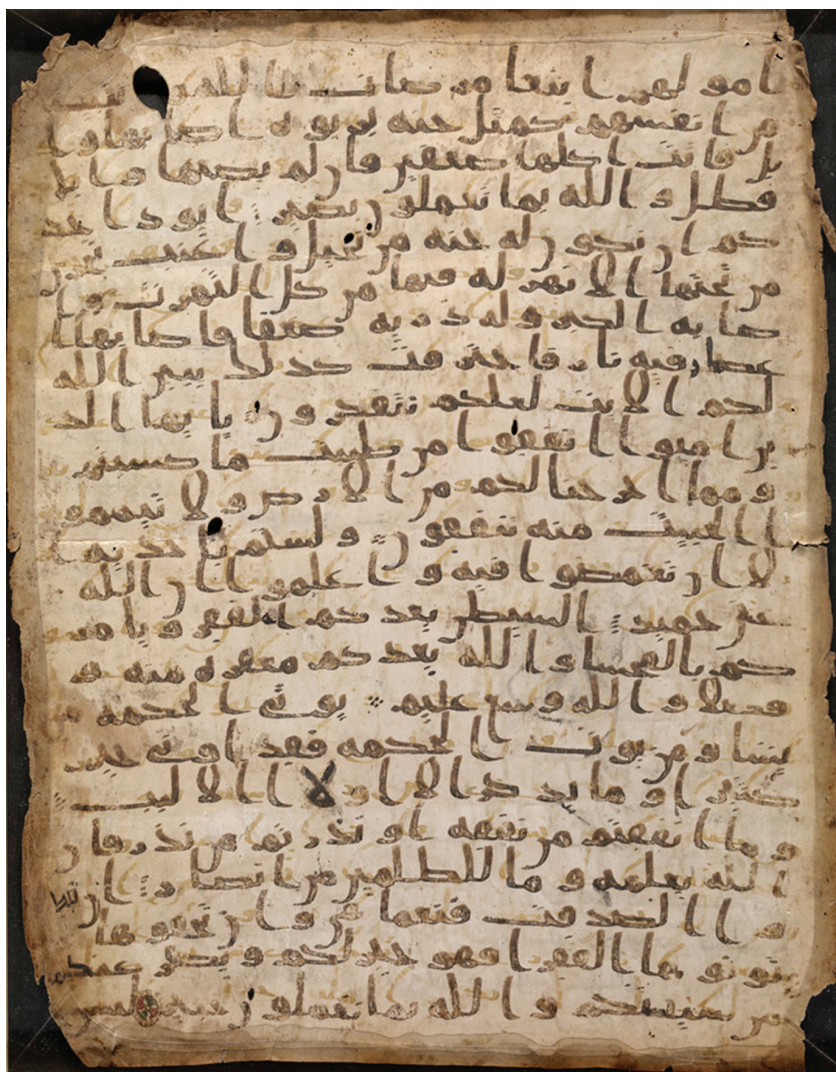 امولهم ابتغا مرضات الله
من انفسهم كمثل جنه بربوه اصابها وا
بل فاتت اكلها ضعفين فان لم يصبها وابل
فطل والله بما تعملون بصير ايود احد
كم ان تكون له جنه من نخيل واعنب تجري
من تحتها الانهر له فيها من كل الثمرت وا
صابه الكبر وله ذريه ضعفا فاصابها ا
عصار فيه نار فاحترقت كذلك يبين الله
لكم الايت لعلكم تتفكرون يايها الذ
ين امنوا انفقوا من طيبت ما كسبتم
ومما اخرجنا لكم من الارض ولا تيممو
ا الخبيث منه تنفقون ولستم باخذيه ا
لا ان تغمضوا فيه واعلموا ان الله
غني حميد الشيطن يعدكم الفقر ويامر
كم بالفحشا والله يعدكم مغفره منه و
فضلا والله وسع عليم يوتي الحكمه من
يشا ومن يوت الحكمه فقد اوتي خير
كثيرا وما يذكر الا اولا الالبب
وما انفقتم من نفقه او نذرتم من نذر فان
الله يعلمه وما للظلمين من انصار ان تبد
وا الصدقت فنعما هي وان تخفوها
وتوتوها الفقرا فهو خير لكم ويكفر عنكم
من سيتكم والله بما تعملون خبير ليس